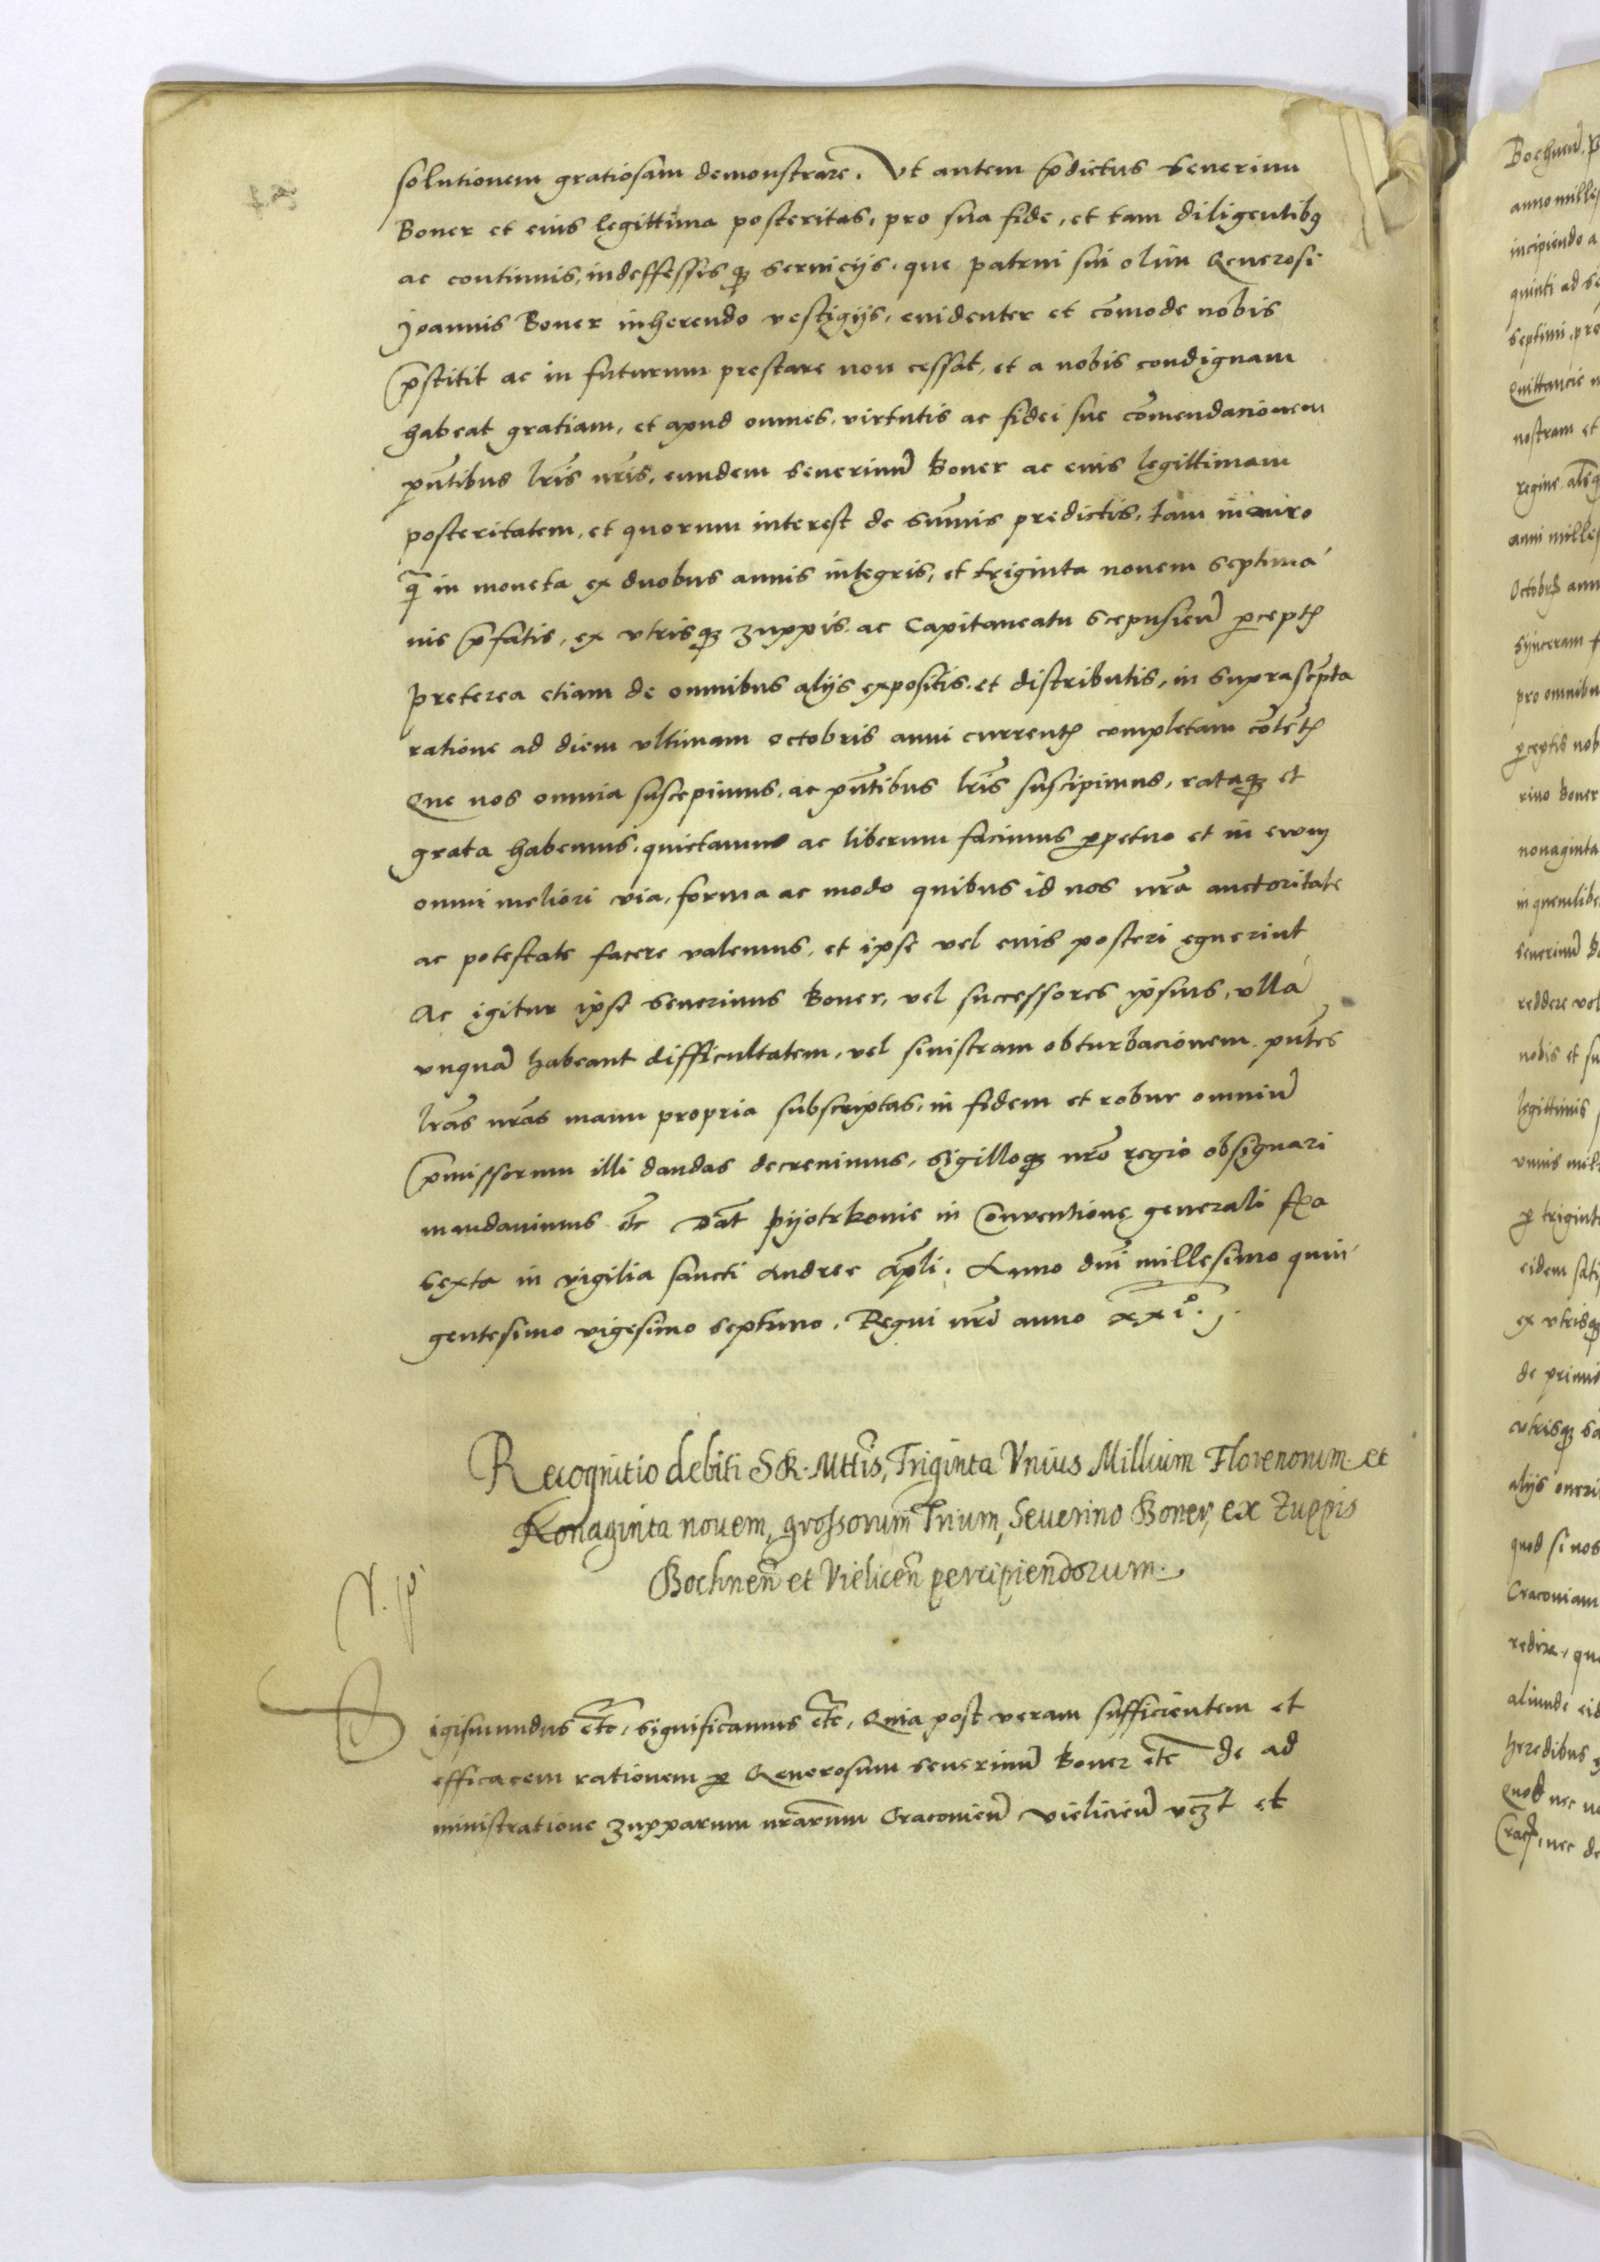 solutionem gratiosam demonstrare. Vt autem p̄dictus Seuerinus
Boner et eius legittima posteritas, pro sua fide, et tam diligentibꝯ
ac continuis, indeffessisqꝫ seruicijs, que patrui sui olim Generosi
Joannis Boner inherendo vestigijs, euidenter et com̄ode nobis
p̄stitit ac in futurum prestare non cessat, et a nobis condignam
habeat gratiam, et apud omnes, virtutis ac fidei sue com̄endacionem
pn̄tibus lrīs nrīs, eundem Seuerinū Boner ac eius legittimam
posteritatem, et quorum interest de sum̄is predictis, tam in auro
q̄ in moneta ex duobus annis integris, et triginta nouem septima
nis p̄fatis, ex vtrisqꝫ zuppis, ac Capitaneatu Scepusien̄ ꝑceptꝭ
preterea etiam de omnibus alijs expositis, et distributis, in suprascr̄pta
ratione ad diem vltimam octobris anni currentꝭ completam cōtētꝭ
Que nos omnia suscepimus, ac pn̄tibus lrīs suscipimus, rataqꝫ et
grata habemus, quietamus ac liberum facimus ꝑpetuo et in euom
omni meliori via, forma ac modo quibus id nos nrā auctoritate
ac potestate facere valemus, et ipse vel euis posteri eguerint
Ac igitur ipse Seuerinus Boner, vel successores ipsius, vlla
vnquā habeant difficultatem, vel sinistram obturbacionem, pn̄tes
lrās nrās manu propria subscriptas, in fidem et robur omniū
p̄missorum illi dandas decreuimus, sigilloqꝫ nrō regio obsignari
mandauimus etc̄ Dat̄ Pijotrkouie in Conuentione generali fr̄ia
sexta in vigilia sancti Andree Ap̄li. Anno dnī millesimo quin
gentesimo vigesimo septimo. Regni nrī anno xxi°.
Recognitio debiti S.R. Mttis, Triginta Vnius Millium Florenorum et
Nonaginta nouem, grossorum Trium, Seuerino Boner, ex Zuppis
Bochnen̄ et Vielicen̄ percipiendorum.
Sigismundus etc̄, significamus etc̄, Quia post veram sufficientem et
efficacem rationem ꝑ Generosum Seuerinū Boner etc̄ de ad
ministratione zupparum nrārum Cracouien̄ Vielicien̄ vcꝫt et